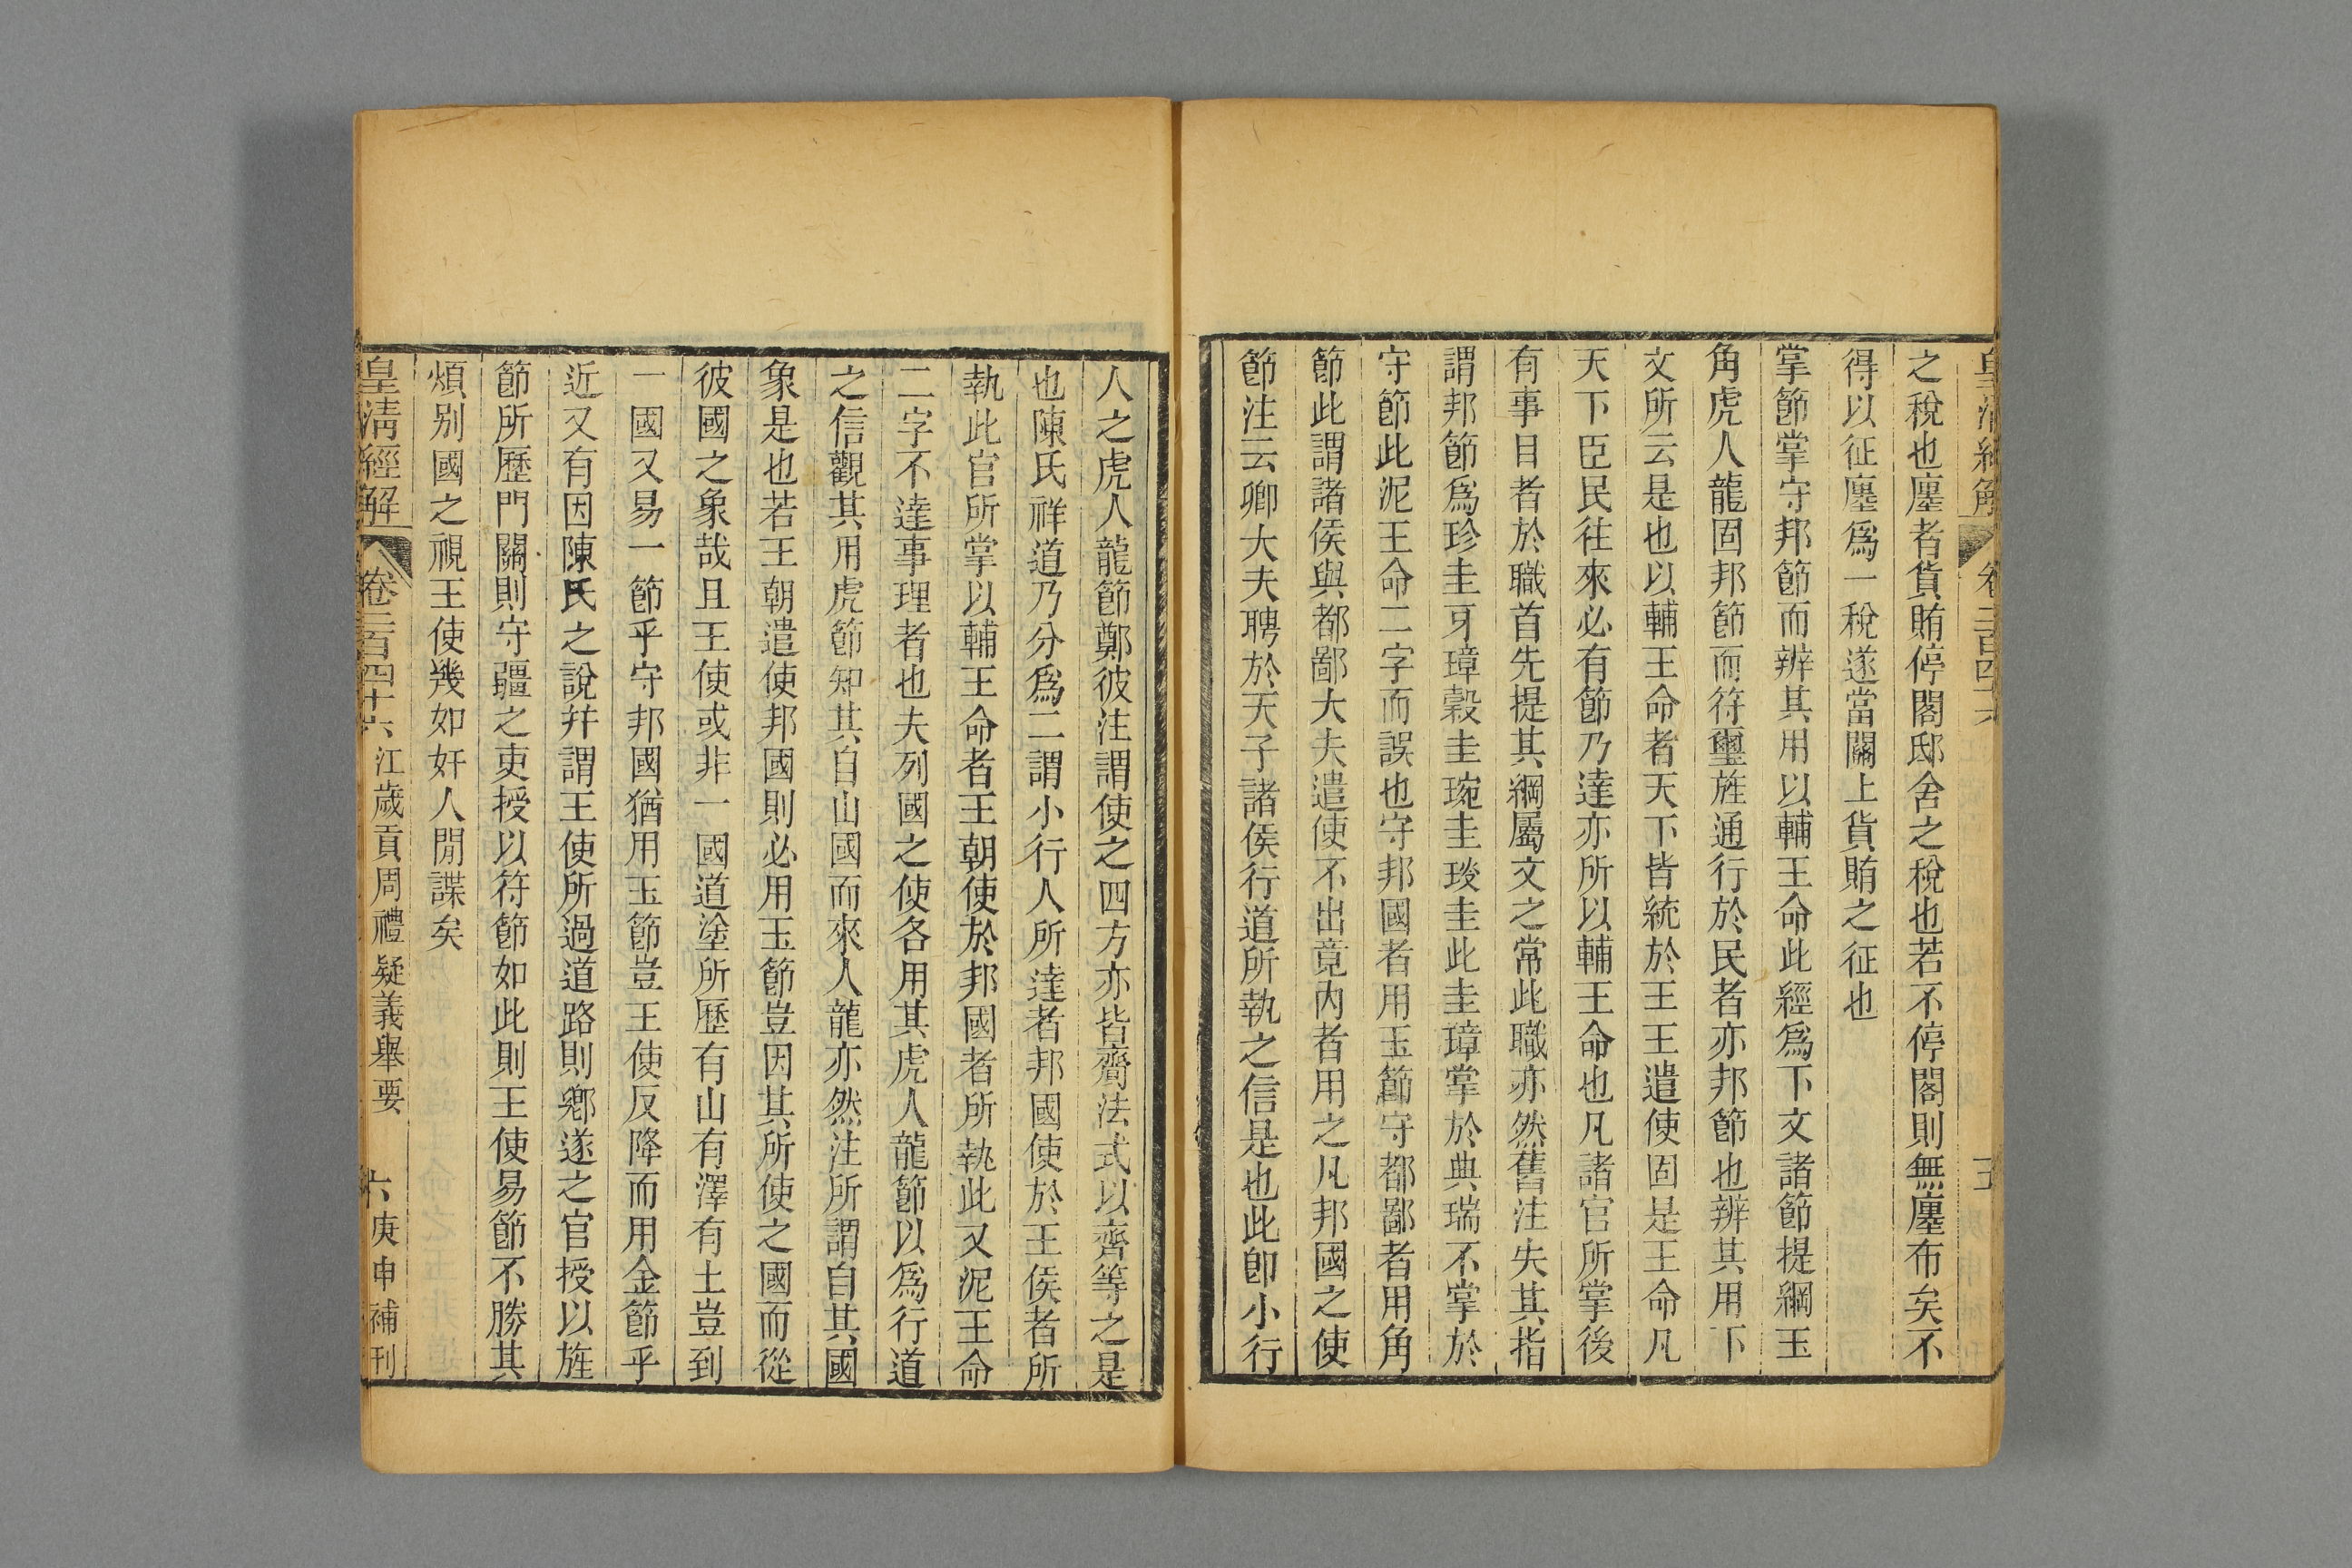 之稅也廛者貨賄停閣邸舍之稅也若不停閣則無廛布矣不
得以征廛爲一稅遂當關上貨賄之征也
掌節掌守邦節而辨其用以輔王命此經爲下文諸節提綱玉
角虎人龍固邦節而符璽旌通行於民者亦邦節也辨其用下
文所云是也以輔王命者天下皆統於王王遣使固是王命凡
天下臣民往來必有節乃達亦所以輔王命也凡諸官所掌後
有事目者於職首先提其綱屬文之常此職亦然舊注失其指
謂邦節爲珍圭牙璋穀圭琬圭琰圭此圭璋掌於典瑞不掌於
守節此泥王命二字而誤也守邦國者用玉節守都鄙者用角
節此謂諸侯與都鄙大夫遣使不出竟內者用之凡邦國之使
節注云卿大夫聘於天子諸侯行道所執之信是也此卽小行
人之虎人龍節鄭彼注謂使之四方亦皆齎法式以齊等之是
也陳氏祥道乃分爲二謂小行人所達者邦國使於王侯者所
執此官所掌以輔王命者王朝使於邦國者所執此又泥王命
二字不達事理者也夫列國之使各用其虎人龍節以爲行道
之信觀其用虎節知其自山國而來人龍亦然注所謂自其國
象是也若王朝遣使邦國則必用玉節豈因其所使之國而從
彼國之象哉且王使或非一國道塗所歷有山有澤有土豈到
一國又易一節乎守邦國猶用玉節豈王使反降而用金節乎
近又有因陳氏之說幷謂王使所過道路則鄕遂之官授以旌
節所歷門關則守疆之吏授以符節如此則王使易節不勝其
煩別國之視王使幾如奸人閒諜矣
皇淸經解 卷二百四十六 江歲貢周禮疑義舉要 六 庚申補刊